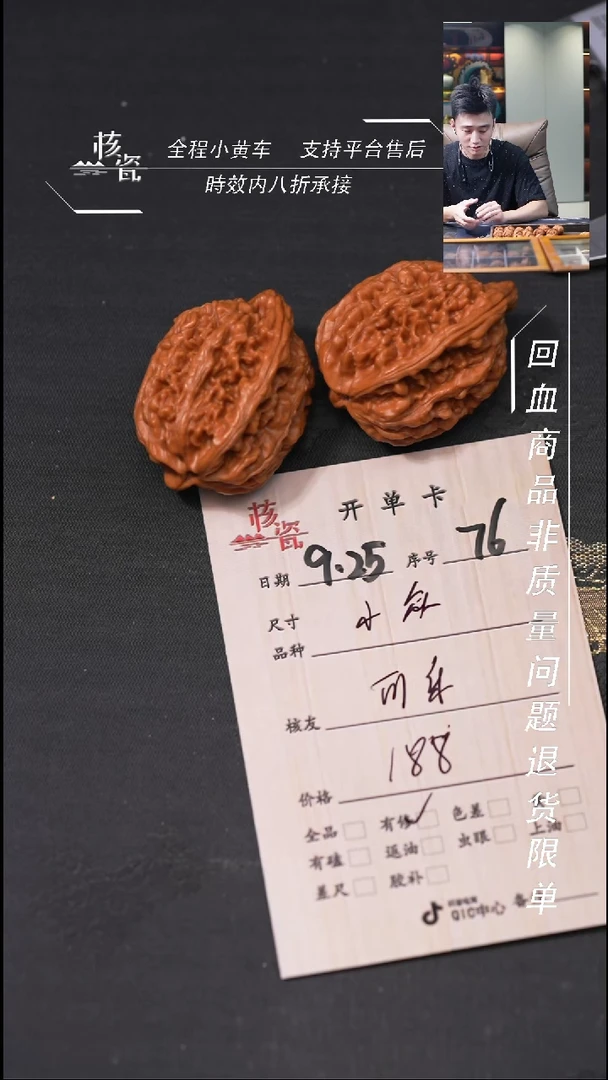 核瓷
全程小黄车 支持平台售后
時效内八折承接
回血商品非质量问题退货限单
核瓷
开单卡
日期 9.25 序号 76
尺寸
品种
核友
188
价格
全品 有修 色差
有磕 返油 虫眼 上油
差尺 胶补
QIC中心